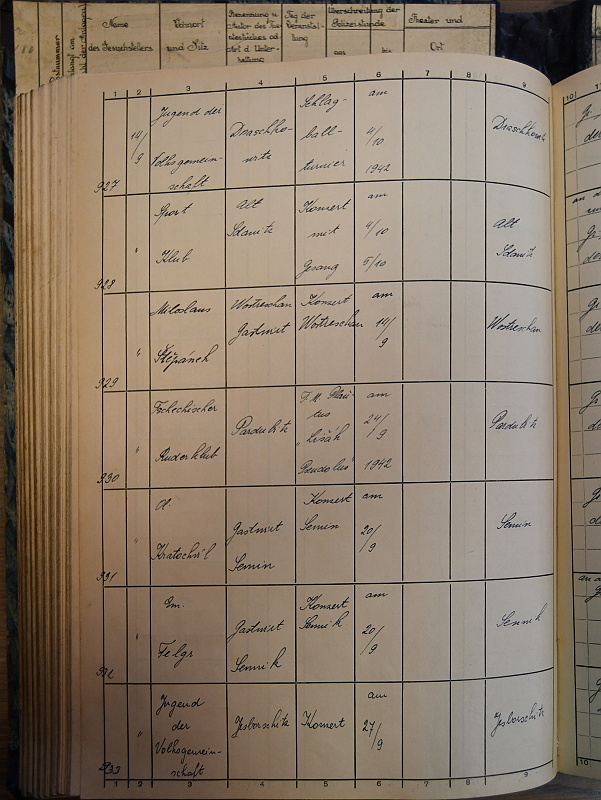 Name
des Gesuchstellers
Wohnort
und Sitz
Benennung u.
Autor des Thea
Art d. Unter-
haltung
Tag der
Veranstal-
tung
Überschreitung der
Polizeistunde
von bis
Theater und
Ort
1 2 3 4 5 6 7 8 9 10
927
14/9
Jugend der
Volksgemein-
schaft
Draschko-
witz
Schlag-
ball-
turnier
am
4/10
1942
Draschkowitz
928
"
Sport
Klub
Alt
Konzert
mit
Gesang
am
4/10
5/10
Alt
929
"
Miloslaus
Štěpánek
Wostreschan
Gastwirt
Konzert
Wostreschan
am
14/9
Wostreschan
930
"
Tschechischer
Ruderklub
Pardubitz
T. M. Plau-
tus
„Lišák
Pseudolus"
am
24/9
1942
Pardubitz
931
"
A.
Kratochvíl
Gastwirt
Semin
Konzert
Semin
am
20/9
Semin
932
"
Em.
Felgr
Gastwirt
Sennik
Konzert
Sennik
am
20/9
Sennik
933
"
Jugend
der
Volksgemein-
schaft
Jesborschitz
Konzert
am
27/9
Jesborschitz
1 2 3 4 5 6 7 8 9 10